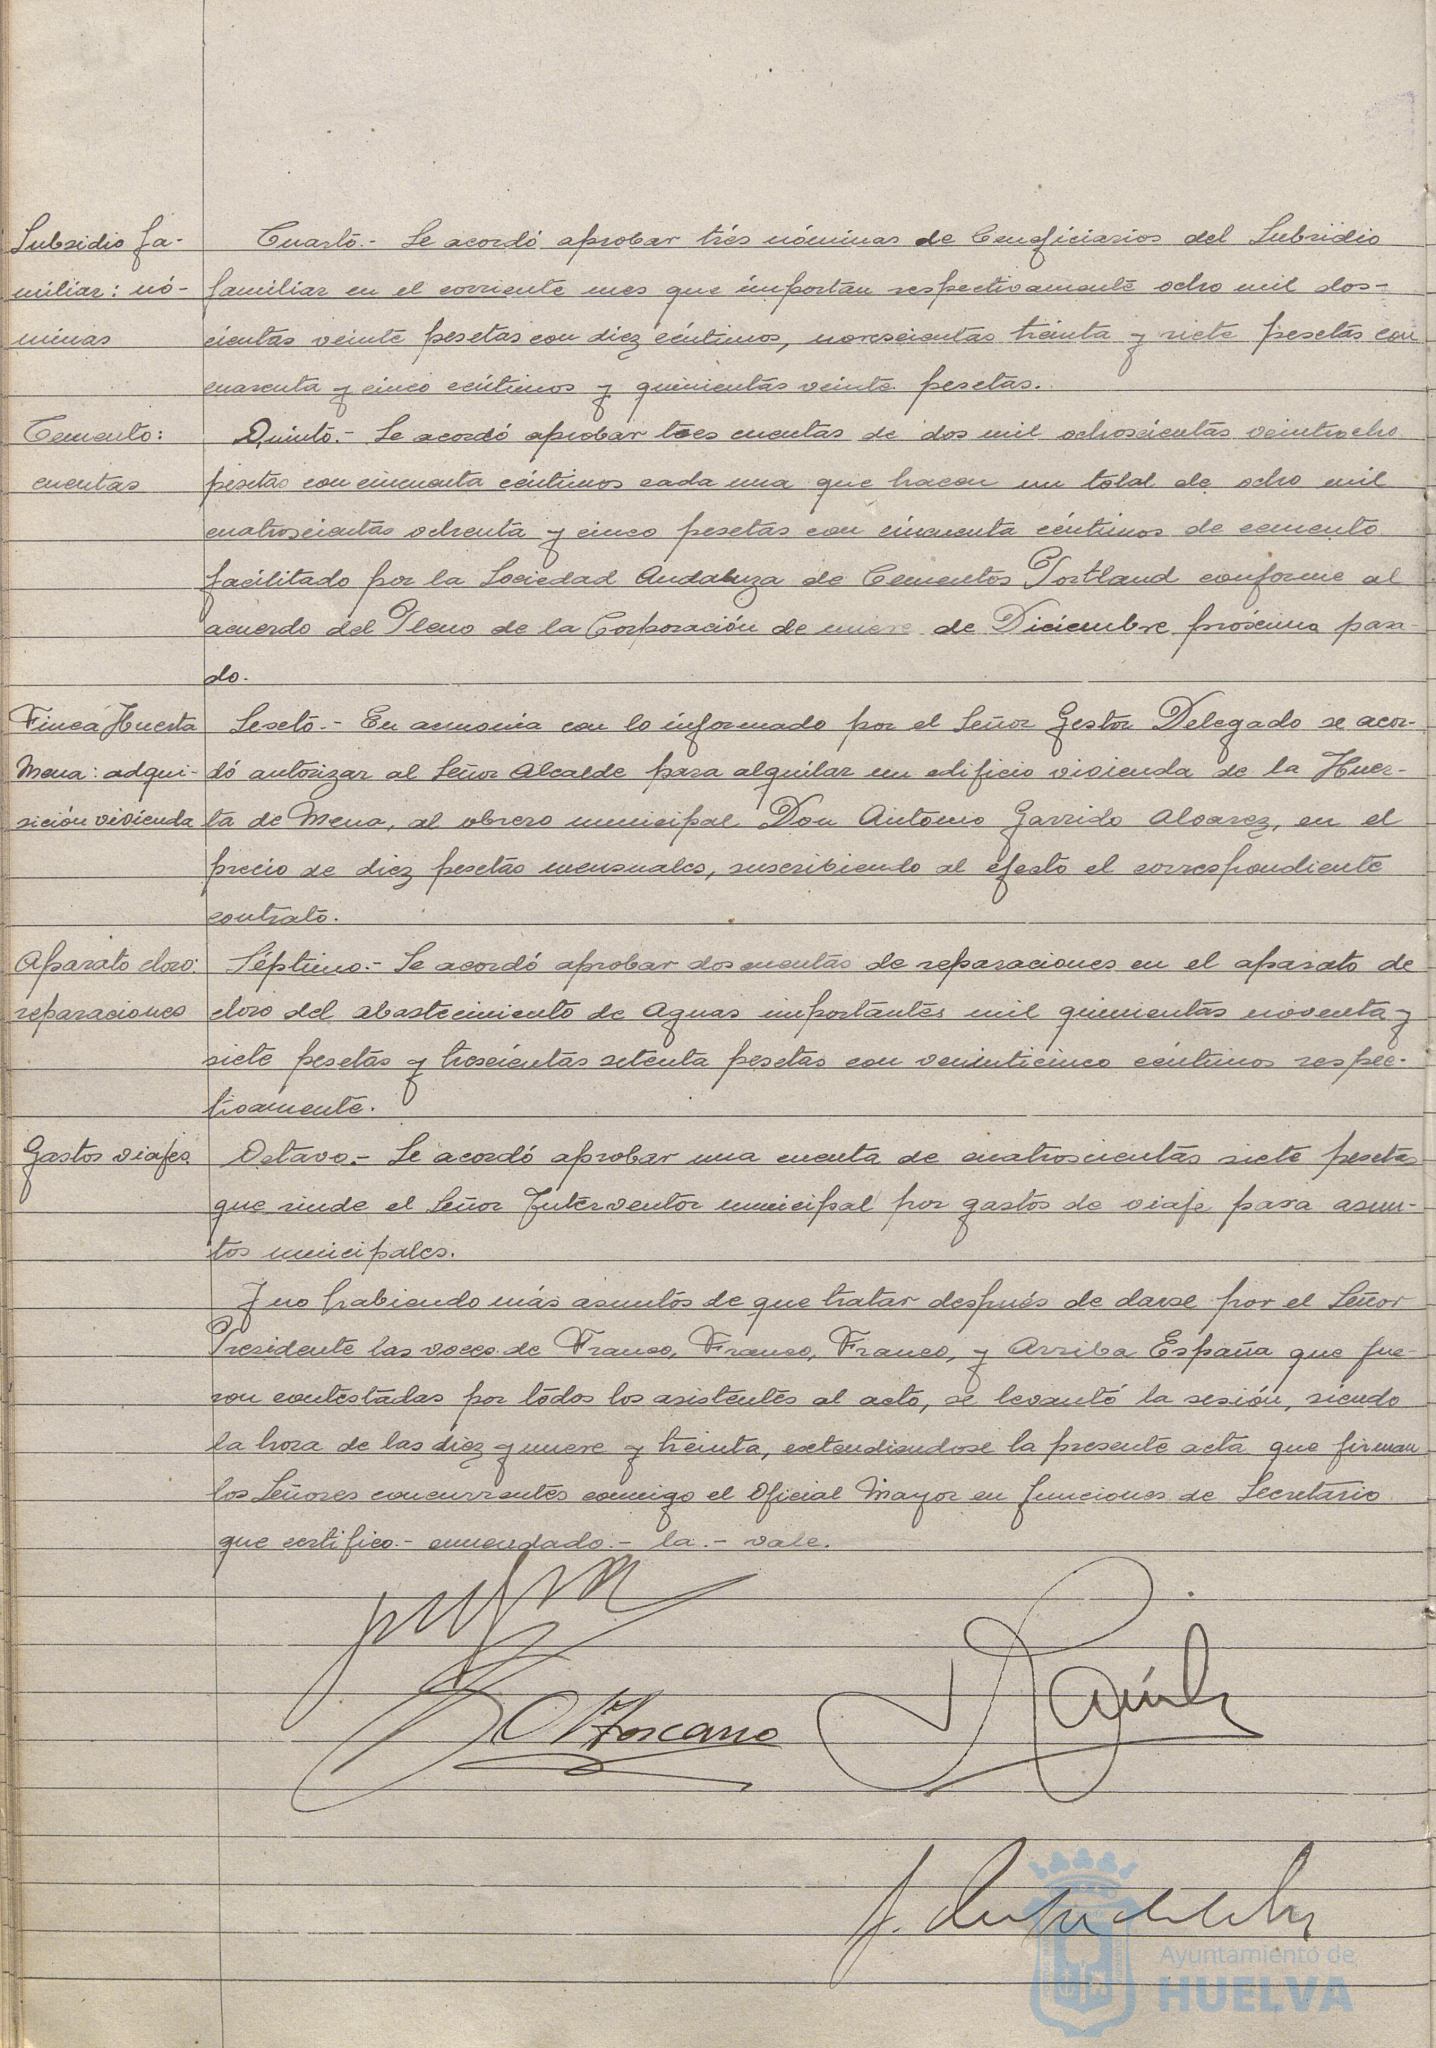 Subsidio fa-
miliar: nó-
minas
Cuarto.- Se acordó aprobar trés nóminas de Beneficiarios del Subsidio
familiar en el corriente mes que importan respectivamente ocho mil dos-
cientas veinte pesetas con diez céntimos, novescientas treinta y siete pesetas con
cuarenta y cinco céntimos y quinientas veinte pesetas.
Cemento:
cuentas
Quinto.- Se acordó aprobar tres cuentas de dos mil ochoscientas veintiocho
pesetas con cincuenta céntimos cada una que hacen un total de ocho mil
cuatroscientas ochenta y cinco pesetas con cincuenta céntimos de cemento
facilitado por la Sociedad Andaluza de Cementos Portland conforme al
acuerdo del Pleno de la Corporación de nueve de Diciembre próximo pasa-
do.
Finca Huerta
Mena: adqui-
sición vivienda
Sexto.- En armonia con lo informado por el Señor Gestor Delegado se acor-
dó autorizar al Señor Alcalde para alquilar un edificio vivienda de la Huer-
ta de Mena, al obrero municipal Don Antonio Garrido Alvarez, en el
precio de diez pesetas mensuales, suscribiendo al efecto el correspondiente
contrato.
Aparato cloro:
reparaciones
Séptimo.- Se acordó aprobar dos cuentas de reparaciones en el aparato de
cloro del abastecimiento de Aguas importantes mil quinientas noventa y
siete pesetas y trescientas setenta pesetas con veninticinco céntimos respec-
tivamente.
Gastos viajes
Octavo.- Se acordó aprobar una cuenta de cuatroscientas siete pesetas
que rinde el Señor Interventor municipal por gastos de viaje para asun-
tos municipales.
Y no habiendo más asuntos de que tratar después de darse por el Señor
Presidente las voces de Franco, Franco, Franco, y Arriba España que fue-
ron contestadas por todos los asistentes al acto, se levantó la sesión, siendo
la hora de las diez y nueve y treinta, extendiendose la presente acta que firman
los Señores concurrentes conmigo el Oficial Mayor en funciones de Secretario
que certifico.- enmendado.- la.- vale.
Toscano
Ayuntamiento de
HUELVA